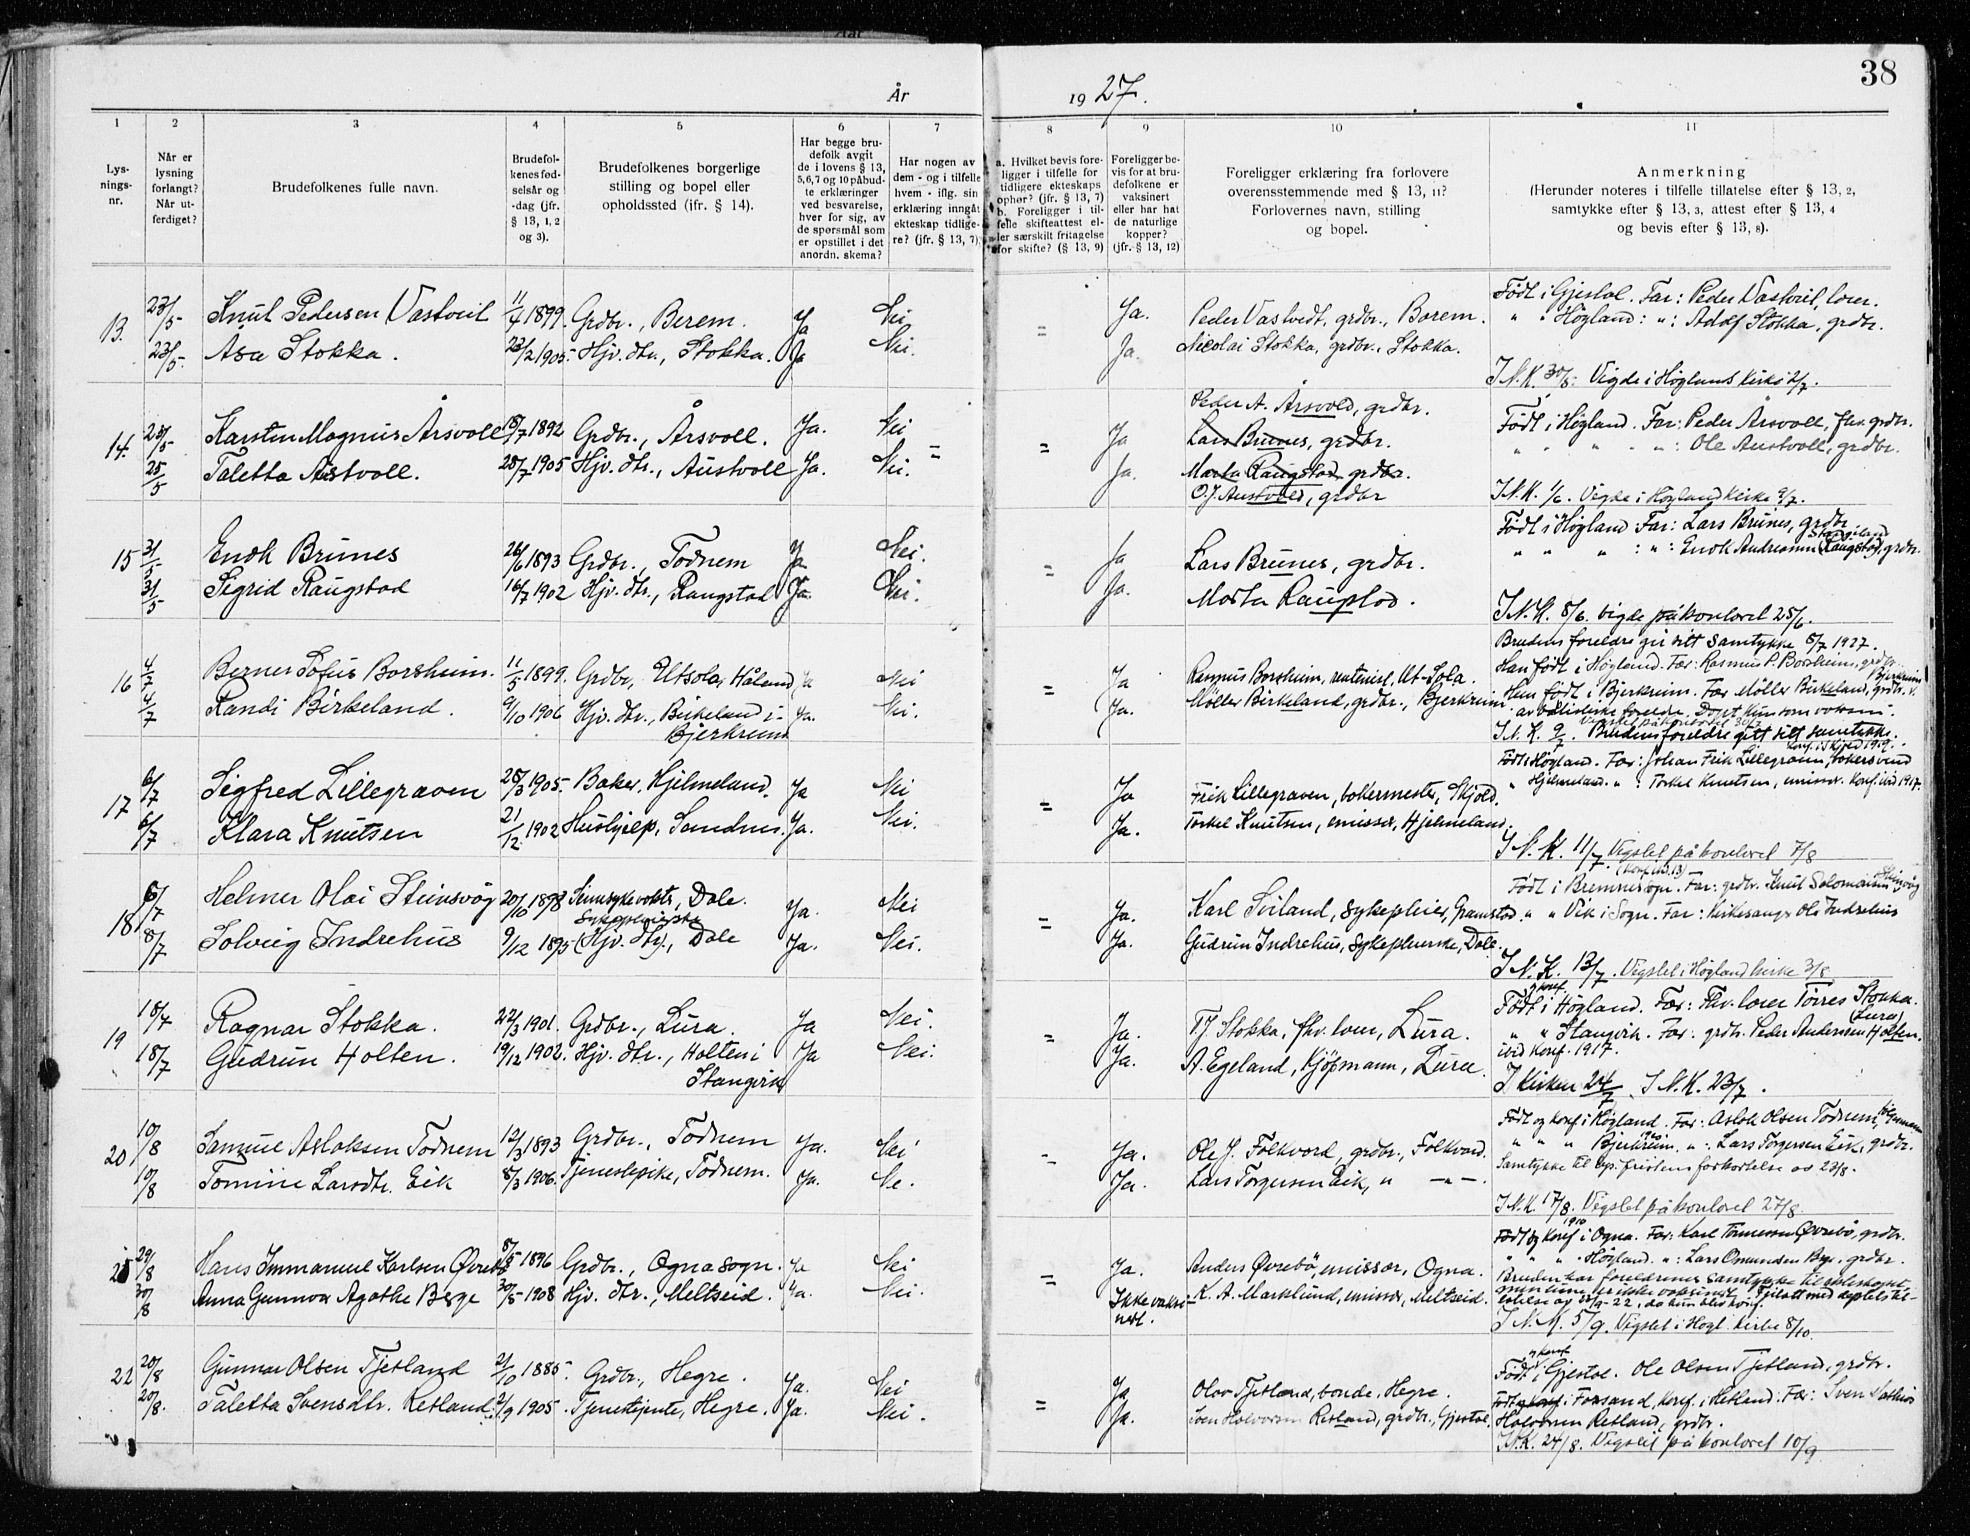 38
År 1927.
1 2 3 4 5 6 7 8 9 10 11
Lysningsnr.
Når er lysning forlangt? Når utferdiget?
Brudefolkenes fulle navn.
Brudefolkenes fødselsår og -dag (jfr. § 13, 1, 2 og 3).
Brudefolkenes borgerlige stilling og bopel eller opholdssted (ifr. § 14).
Har begge brudefolk avgit de i lovens § 13, 5, 6, 7 og 10 påbudte erklæringer ved besvarelse, hver for sig, av de spørsmål som er opstillet i det anordn. skema?
Har nogen av dem - og i tilfelle hvem - iflg. sin erklæring inngåt ekteskap tidligere? (jfr. § 13, 7)
a. Hvilket bevis foreligger i tilfelle for tidligere ekteskaps ophør? (jfr. § 13, 7) b. Foreligger i tilfelle skifteattest eller særskilt fritagelse for skifte? (§ 13, 9)
Foreligger bevis for at brudefolkene er vaksinert eller har hat de naturlige kopper? (jfr. § 13, 12)
Foreligger erklæring fra forlovere overensstemmende med § 13, 11? Forlovernes navn, stilling og bopel.
Anmerkning (Herunder noteres i tilfelle tillatelse efter § 13, 2, samtykke efter § 13, 3, attest efter § 13, 4 og bevis efter § 13, 8).
13. 23/5 Knut Pedersen Vastveit 11/4 1899. Grdbr., Berem. Ja Nei = Ja. Peder Vastvedt, grdbr., Borem. Født i Gjestal. Far: Peder Vastveit, lærer.
23/5. Asa Stokka. 23/2 1905. Hjv. dtr., Stokka. Ja Nei. Ja. Nicolai Stokka, grdbr., Stokka. " " Høgland: ": Adolf Stokka, grdbr.
I N. K. 30/5. Vigde i Høglands kirke 2/7.
14. Peder A. Årsvold, grdbr.
Karsten Magnus Årsvoll 18/7 1892 Grdbr., Årsvoll. Ja. Nei = Ja Lars Brunes, grdbr. Født i Høgland. Far: Peder Årsvoll, fhv. grdbr.
25/5 Taletta Austvoll. 28/7 1905 Hjv. dtr., Austvoll Ja. Nei. Ja. Marta Raugstad grdbr. " " " " ": Ole Austvoll, grdbr.
O.J. Austvold, grdbr I N. K. 1/6. Vigde i Høgland kirke 9/7.
15 31/5 Enok Brunes 26/6 1893 Grdbr., Todnem Ja Nei. = Ja Lars Brunes, grdbr. Født i Høgland Far: Lars Brunes, grdbr
31/5 Sigrid Raugstad 16/7 1902 Hjv. dtr., Raugstad Ja. Nei. Ja. Marta Raugstad. " " " : ": Enok Andreassen Raugstad, grdbr.
I N. K. 8/6. vigde på kontoret 25/6.
Brudens foreldre gir sitt samtykke 5/7 1927.
16 4/7 Berner Sofus Borsheim. 11/5 1899. Grdbr, Utsola, Håland Ja Nei = Ja Rasmus Borsheim, rentenist, Ut-Sola. Han født i Høgland. Far: Rasmus P. Borsheim, grdbr.
4/7 Randi Birkeland. 9/10 1906 Hjv. dtr., Birkeland i Bjerkreim Ja. Nei. Ja. Møller Birkeland, grdbr., Bjerkreim. Hun født i Bjerkreim. Far Møller Birkeland, grdbr.
av baptistiske foreldre. Døpt kun som voksen.
I N. K. 9/7. Brudens foreldre gitt sitt samtykke.
17 6/7 Sigfred Lillegraven 28/3 1905. Baker, Hjelmeland. Ja Nei = Ja Erik Lillegraven, bakermester, Skjold. Født i Høgland. Far: Johan Erik Lillegraven, bakersvend
6/7 Klara Knutsen 21/12 1902 Hushjelp, Sandnes. Ja. Nei. Ja. Torkel Knutsen, emissær, Hjelmeland. " Hjelmeland. " : Torkel Knutsen, emissær. Konf. ivid 1917.
I N. K. 11/7. Vigslet på kontoret 7/8
18 6/7 Helmer Olai Steinsvåg 20/10 1898 Sinnsykevokter, Dale. Ja. Nei = Ja. Karl Sviland, sykepleier, Gramstad. Født i Bremnes sogn. Far: grdbr. Knut Salomonsen Steinsvåg
8/7 Solveig Indrehus 9/12 1895 Sykepleierske (Hjv. dtr.), Dale Ja. Nei. Ja. Gudrun Indrehus, sykepleierske, Dale. " " Vik i Sogn. Far: kirkesanger Ole Indrehus
I N. K. 13/7. Vigslet i Høgland kirke 3/8
19 18/7 Ragnar Stokka. 22/3 1901. Grdbr., Lura. Ja Nei. = Ja. T J Stokka, fhv. lærer, Lura. Født i Høgland. Far: Fhv. lærer Tørres Stokka. (Lura)
18/7 Gudrun Holten. 19/12 1902. Hjv. dtr., Holten i Stangvik Ja Nei. Ja. A. Egeland, Kjøpmann, Lura. " " Stangvik. Far: grdbr. Peder Andersen Holten.
ivid konf. 1917.
I kirken 24/7. I N. K. 23/7.
20 10/8 Samuel Aslaksen Todnem 12/3 1893 Grdbr., Todnem Ja. Nei Ja. Ole J. Folkvord, grdbr., Folkvord. Født og konf i Høgland. Far: Aslak Olsen Todnem,
10/8 Tomine Larsdtr. Eik 8/3 1906. Tjenestepike, Todnem. Ja. Ne. Ja. Lars Torgersen Eik, " —"—. " " " Bjerkreim. ": Lars Torgersen Eik, grdbr.
Samtykke til lys. fristens forkortelse av 23/8.
I N. K. 17/8. Vigslet på kontoret 27/8.
21 29/8 Hans Immanuel Karlsen Øvrebø 8/5 1896 Grdbr., Ogna sogn. Ja Nei = Ja. Anders Øvrebø, emissær, Ogna. Født og konf 1910 i Ogna. Far: Karl Tønnessen Øvrebø, grdbr.
30/8 Anna Gunvor Agathe Berge 30/5 1908 Hjv. dtr., Meltseid. Ja. Nei. = Ikke vaksinert. K. A. Marklund, emissær, Meltseid. " " " Høgland. ": Lars Osmundsen Berge, grdbr.
Bruden har foreldrenes samtykke til ekteskapet
I N. K. 5/9. Vigslet i Høgl. kirke 8/10.
22 20/8 Gunnar Olsen Tjetland 21/10 1885 Grdbr., Hegre. Ja. Nei = Ja Olav Tjetland, bonde, Hegre. Født og konf i Gjestal. Ole Olsen Tjetland, grdbr.
20/8. Taletta Svensdtr. Retland 2/9 1905. Tjenestejente, Hegre. Ja. Nei. Ja. Sven Halvorsen Retland, grdbr., Gjestal. Født i Forsand, konf. i Hetland. Far: Sven
Halvorsen Retland, grdbr.
I N. K. 24/8. Vigslet på kontoret 10/9